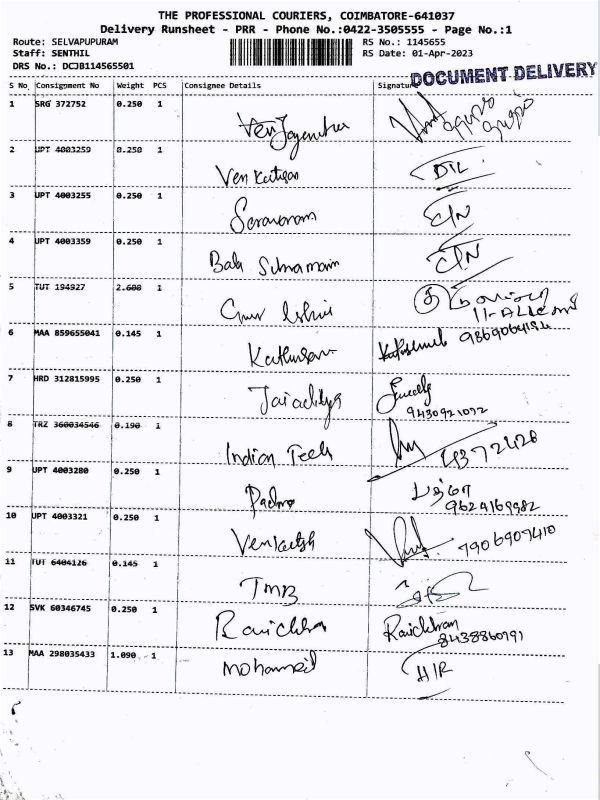 THE PROFESSIONAL COURIERS, COIMBATORE-641037
Delivery Runsheet - PRR - Phone No.:0422-3505555 - Page No.:1
Route: SELVAPUPURAM RS No.: 1145655
Staff: SENTHIL RS Date: 01-Apr-2023
DRS No.: DCJB114565501
DOCUMENT DELIVERY
S No Consignment No Weight PCS Consignee Details Signature
1 SRG 372752 0.250 1
2 UPT 4003259 0.250 1 Venkatesan DTL
3 UPT 4003255 0.250 1 Saravanam C/N
4 UPT 4003359 0.250 1 Bala C/N
5 TUT 194927 2.600 1
6 MAA 859655041 0.145 1
7 HRD 312815995 0.250 1 Jaiaditya
9430921092
8 TRZ 360034546 0.190 1 Indian Tech 94372428
9 UPT 4003280 0.250 1 Padma பத்மா
9629169982
10 UPT 4003321 0.250 1 Venkatesh 7906907410
11 TUT 6404126 0.145 1 TMB
12 SVK 60346745 0.250 1 Ravichran Ravichran
8438860791
13 MAA 298035433 1.090 1 Mohammed H/R